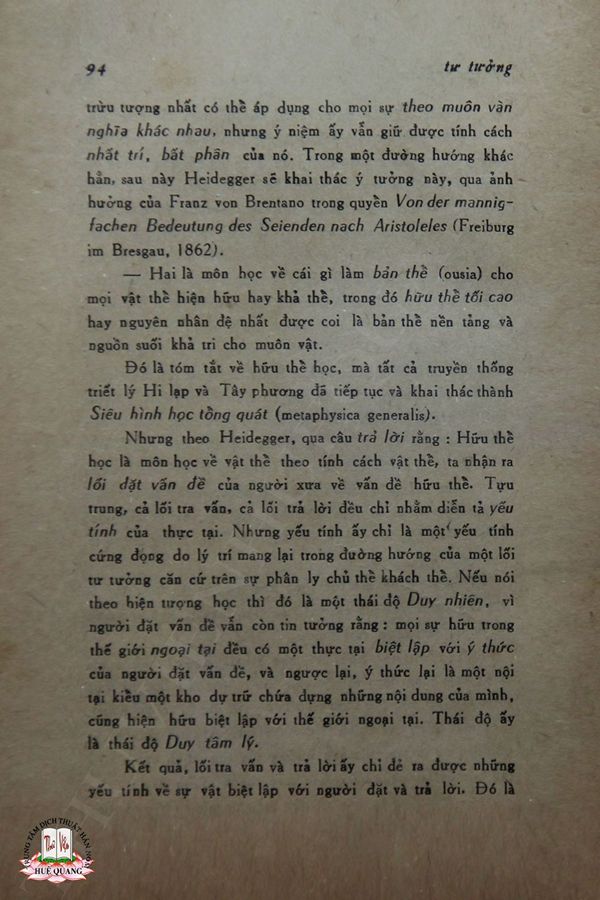 94
tư tưởng
trừu tượng nhất có thể áp dụng cho mọi sự theo muôn vàn
nghĩa khác nhau, nhưng ý niệm ấy vẫn giữ được tính cách
nhất trí, bất phân của nó. Trong một đường hướng khác
hẳn, sau này Heidegger sẽ khai thác ý tưởng này, qua ảnh
hưởng của Franz von Brentano trong quyền Von der mannig-
fachen Bedeutung des Seienden nach Aristoleles (Freiburg
im Bresgau, 1862).
— Hai là môn học về cái gì làm bản thể (ousia) cho
mọi vật thể hiện hữu hay khả thể, trong đó hữu thể tối cao
hay nguyên nhân đệ nhất được coi là bản thể nền tảng và
nguồn suối khả tri cho muôn vật.
Đó là tóm tắt về hữu thể học, mà tất cả truyền thống
triết lý Hi lạp và Tây phương đã tiếp tục và khai thác thành
Siêu hình học tổng quát (metaphysica generalis).
Nhưng theo Heidegger, qua câu trả lời rằng : Hữu thể
học là môn học về vật thể theo tính cách vật thể, ta nhận ra
lối đặt vấn đề của người xưa về vấn đề hữu thể. Tựu
trung, cả lối tra vấn, cả lối trả lời đều chỉ nhằm diễn tả yếu
tính của thực tại. Nhưng yếu tính ấy chỉ là một yếu tính
cứng đọng do lý trí mang lại trong đường hướng của một lối
tư tưởng căn cứ trên sự phân ly chủ thể khách thể. Nếu nói
theo hiện tượng học thì đó là một thái độ Duy nhiên, vì
người đặt vấn đề vẫn còn tin tưởng rằng : mọi sự hữu trong
thế giới ngoại tại đều có một thực tại biệt lập với ý thức
của người đặt vấn đề, và ngược lại, ý thức lại là một nội
tại kiểu một kho dự trữ chứa đựng những nội dung của mình,
cũng hiện hữu biệt lập với thế giới ngoại tại. Thái độ ấy
là thái độ Duy tâm lý.
Kết quả, lối tra vấn và trả lời ấy chỉ đẻ ra được những
yếu tính về sự vật biệt lập với người đặt và trả lời. Đó là
TRUNG TÂM DỊCH THUẬT HÁN NÔM
HUỆ QUANG